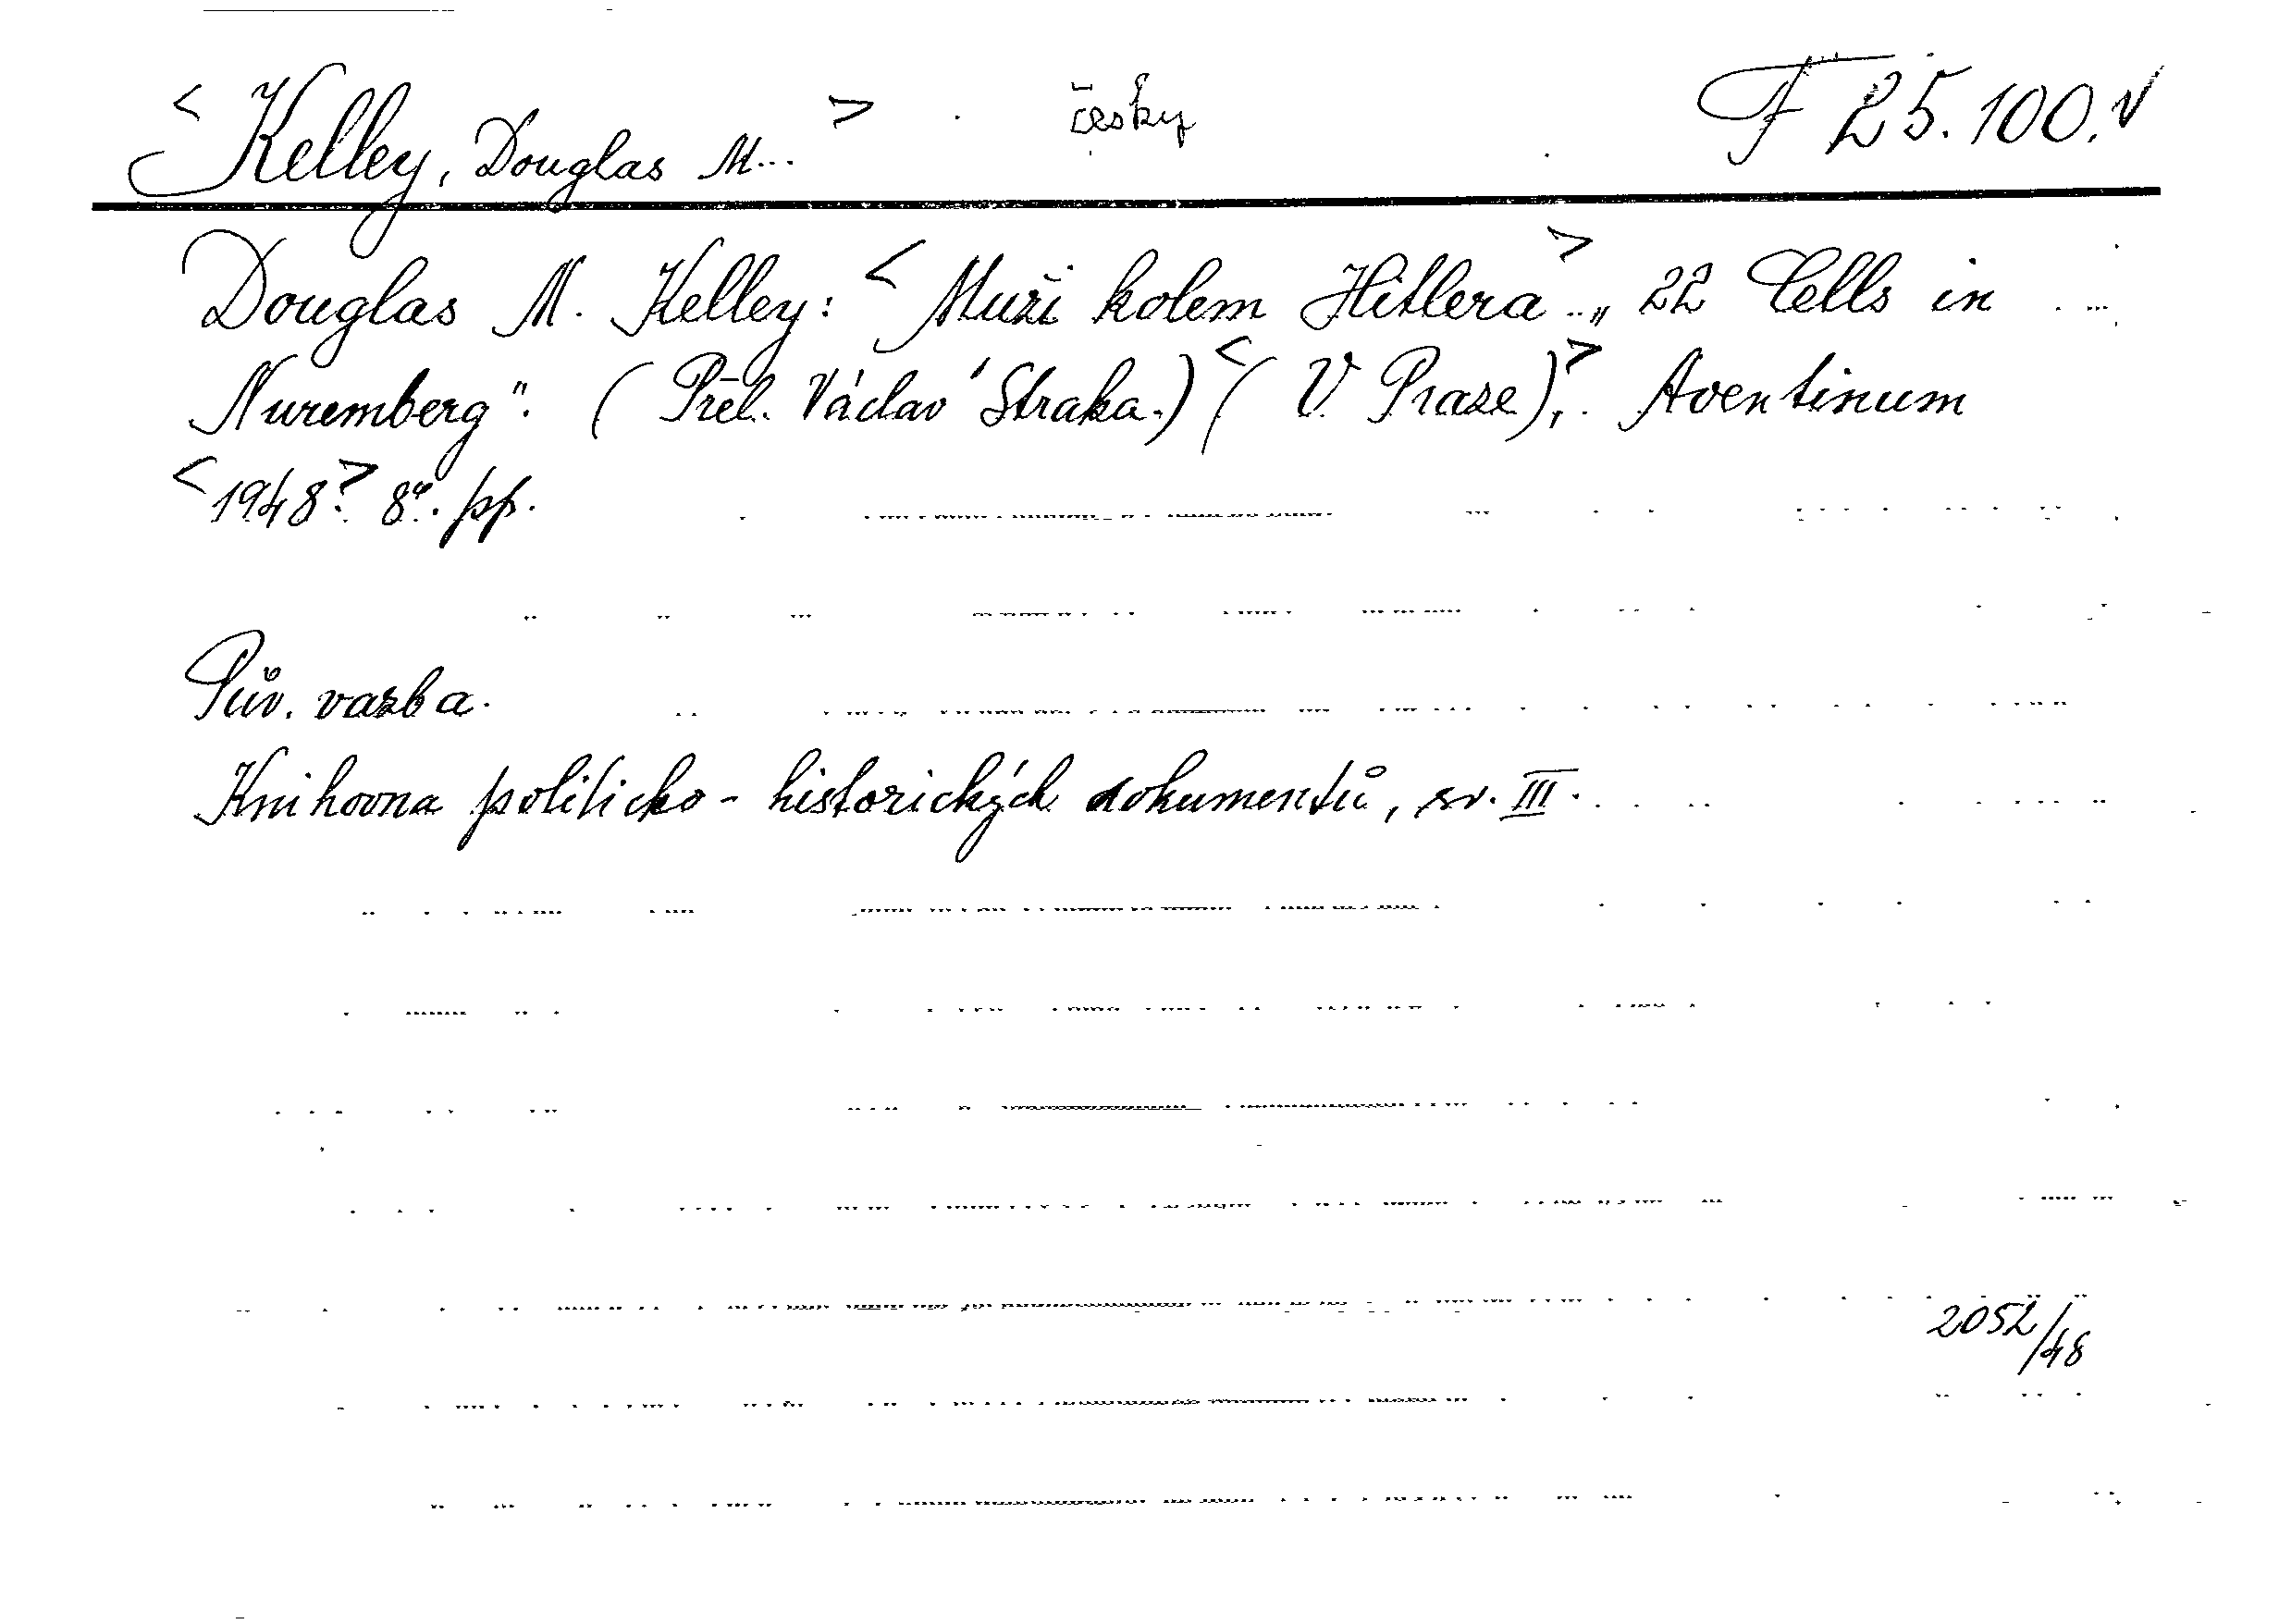 <Kelley, Douglas M...> česky F 25.100.v
Douglas M. Kelley: <Muži kolem Hitlera>. „22 Cells in
Nuremberg". (Přel. Václav Straka.) <(V Praze),> Aventinum
<1948>. 8°. pp.
Pův. vazba.
Knihovna politicko-historických dokumentů, sv. III.
2052/48